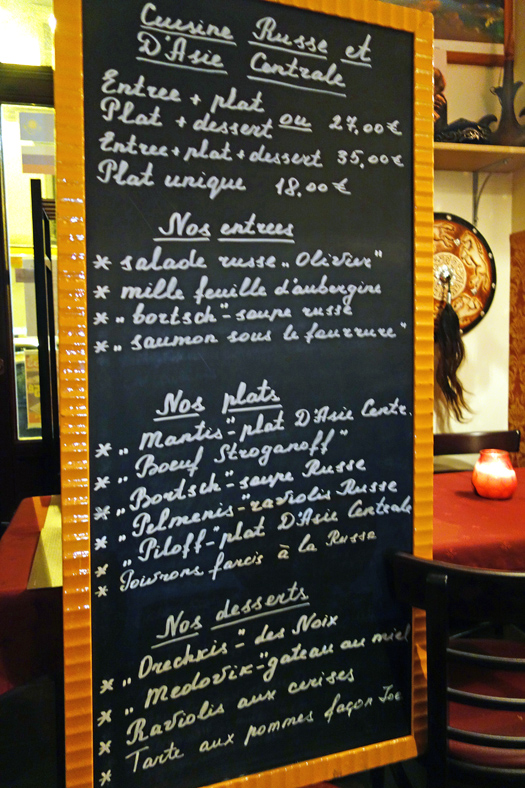 Cuisine Russe et
D'Asie Centrale
Entree + plat
Plat + dessert ou 27,00 €
Entree + plat + dessert 35,00 €
Plat unique 18,00 €
Nos entrees
* salade russe „Olivier"
* mille feuille d'aubergine
* „bortsch"- soupe russe
* „saumon sous le fourrure"
Nos plats
* „Mantis"- plat D'Asie Centr.
* „Boeuf Stroganoff"
* „Bortsch"- soupe Russe
* „Pelmenis"- raviolis Russe
* „Piloff"- plat D'Asie Centrale
* Poivrons farcis à la Russe
Nos desserts
* „Orechkis"- des Noix
* „Medovik"- gateau au miel
* Raviolis aux cerises
* Tarte aux pommes façon